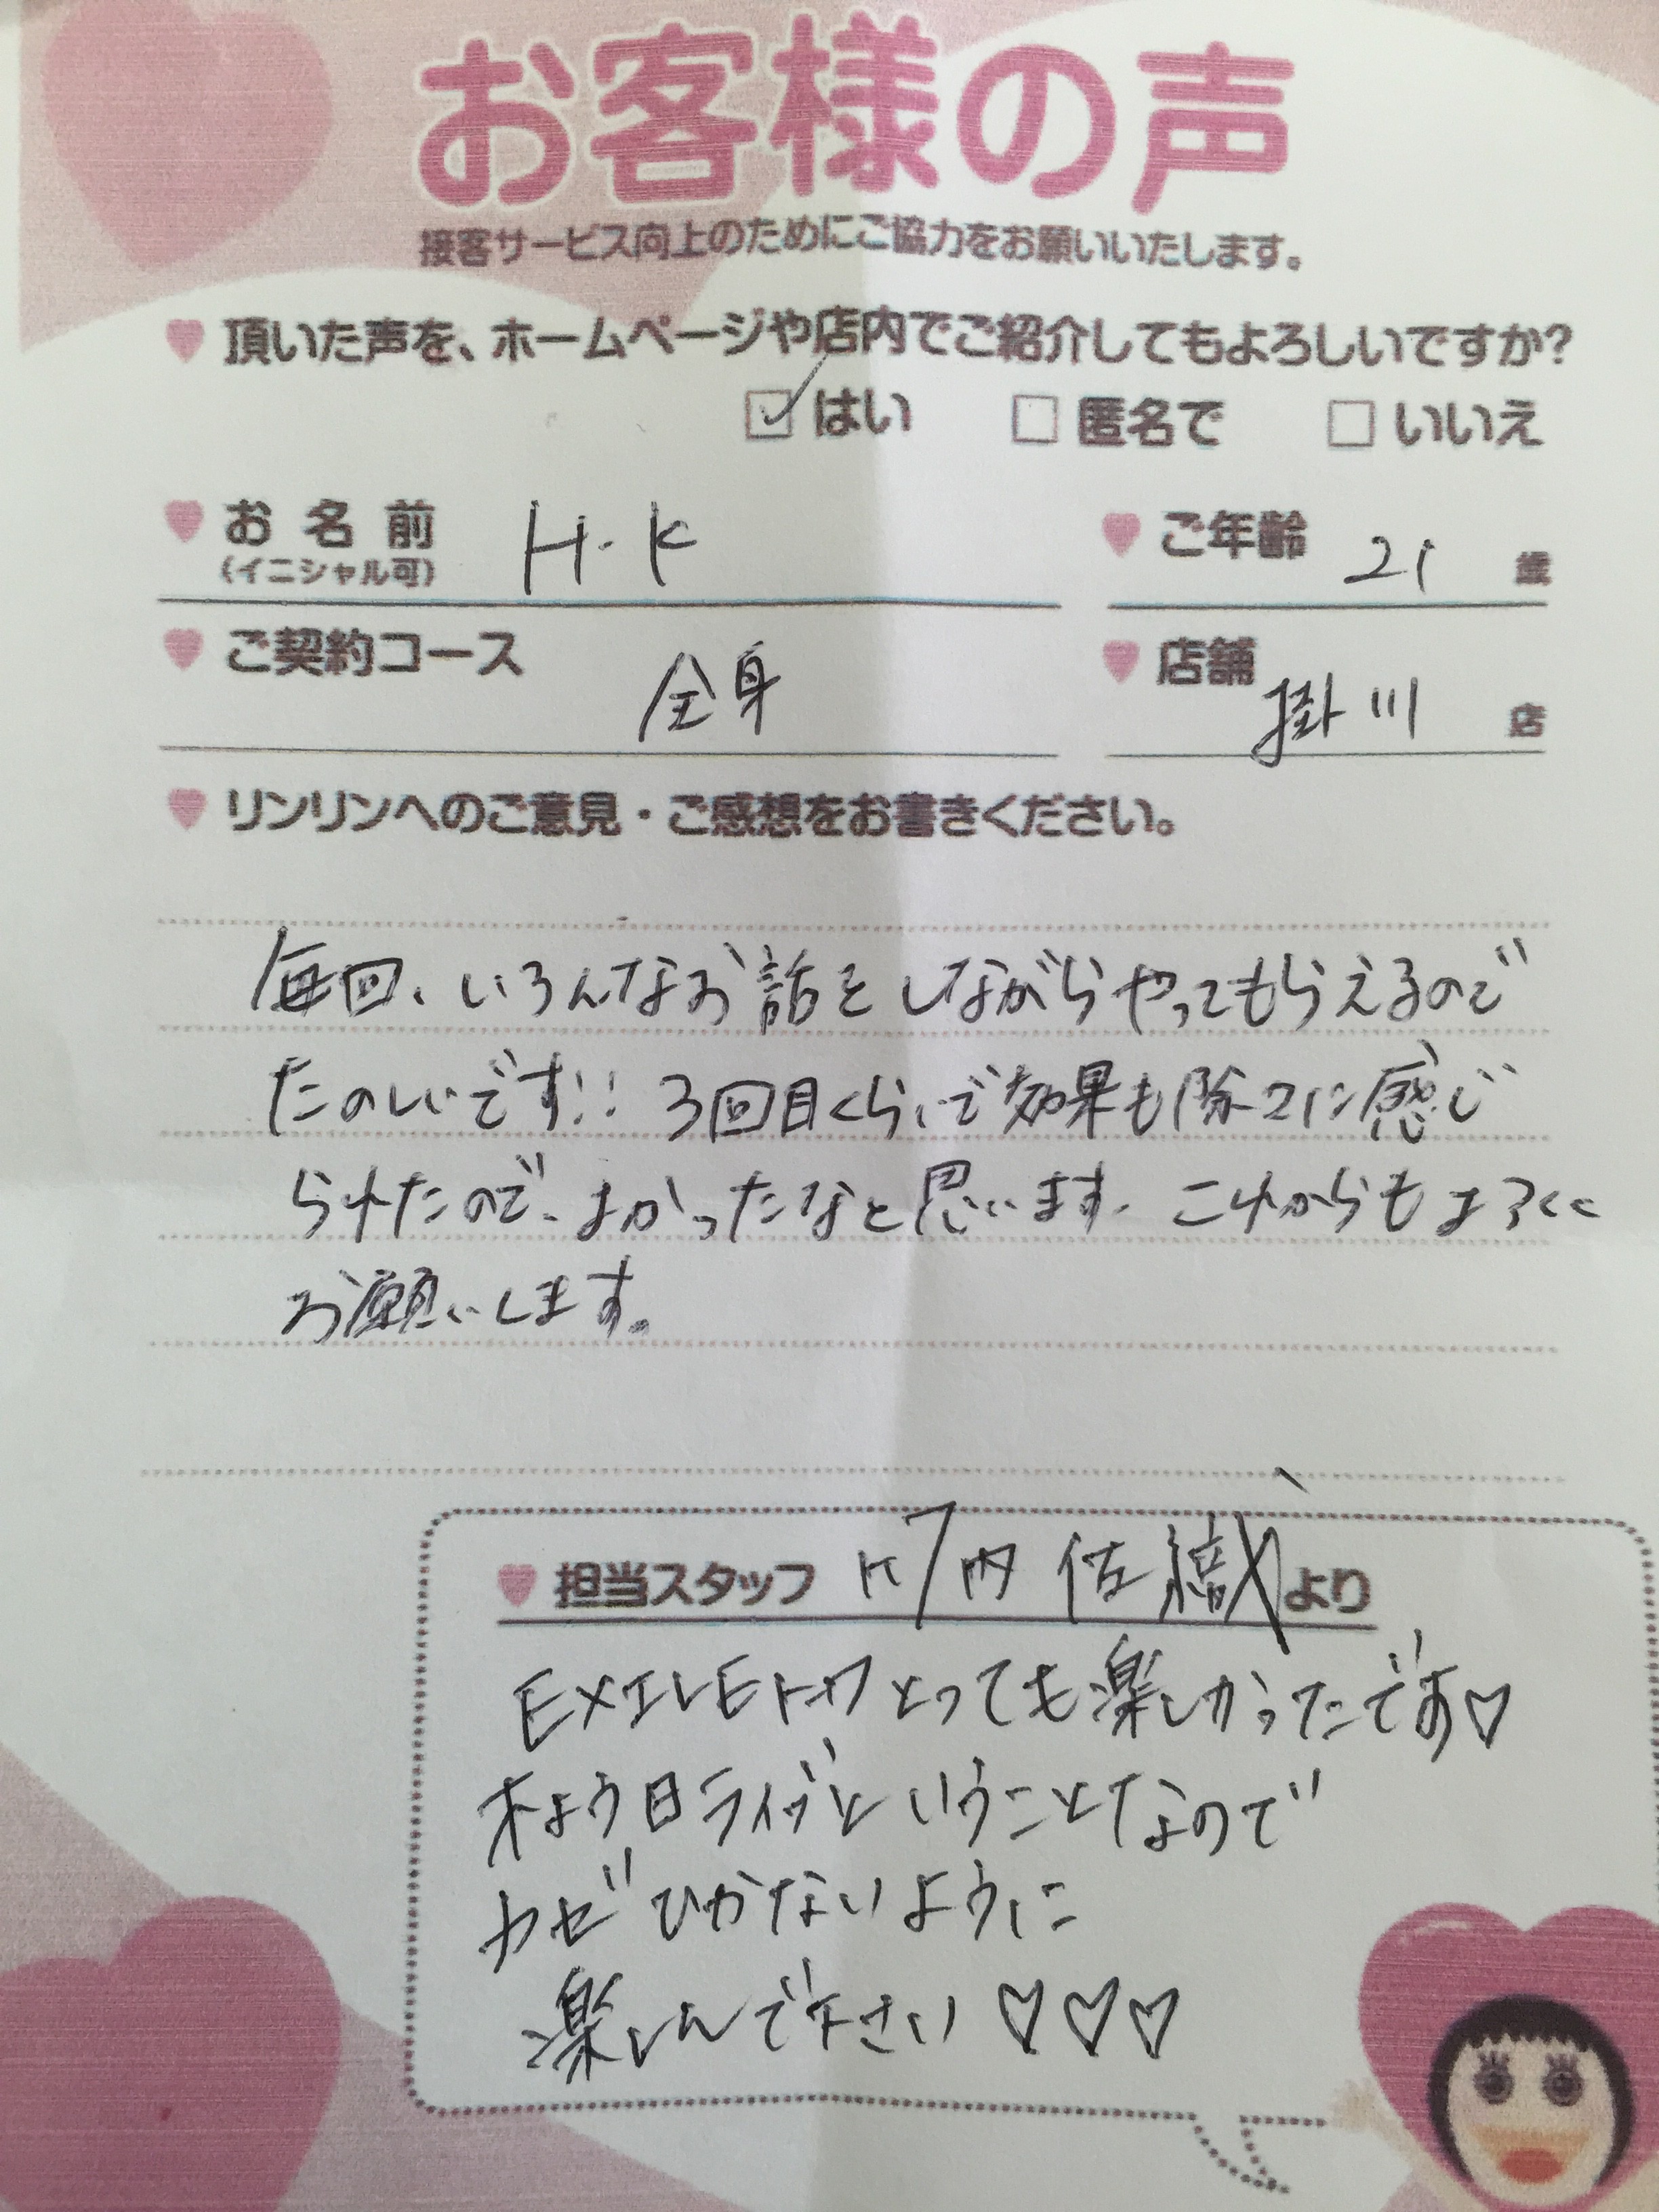 お客様の声
接客サービス向上のためにご協力をお願いいたします。
頂いた声を、ホームページや店内でご紹介してもよろしいですか?
はい 匿名で いいえ
お名前 H.K
(イニシャル可)
ご年齢 21 歳
ご契約コース 全身
店舗 掛川 店
リンリンへのご意見・ご感想をお書きください。
毎回、いろんなお話をしながらやってもらえるので
たのしいです!! 3回目くらいで効果も 感じ
られたので、よかったなと思います。これからもよろしく
お願いします。
担当スタッフ 内 佐織 より
EXILEトークとっても楽しかったです♡
木よう日ライブということなので
カゼひかないように
楽しんで下さい♡♡♡